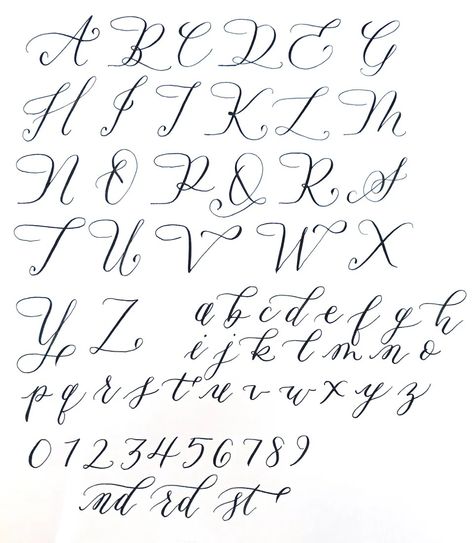 A B C D E G
H I J K L M
N O P Q R S
T U V W X
Y Z a b c d e f g h
i j k l m n o
p q r s t u v w x y z
0 1 2 3 4 5 6 7 8 9
nd rd st